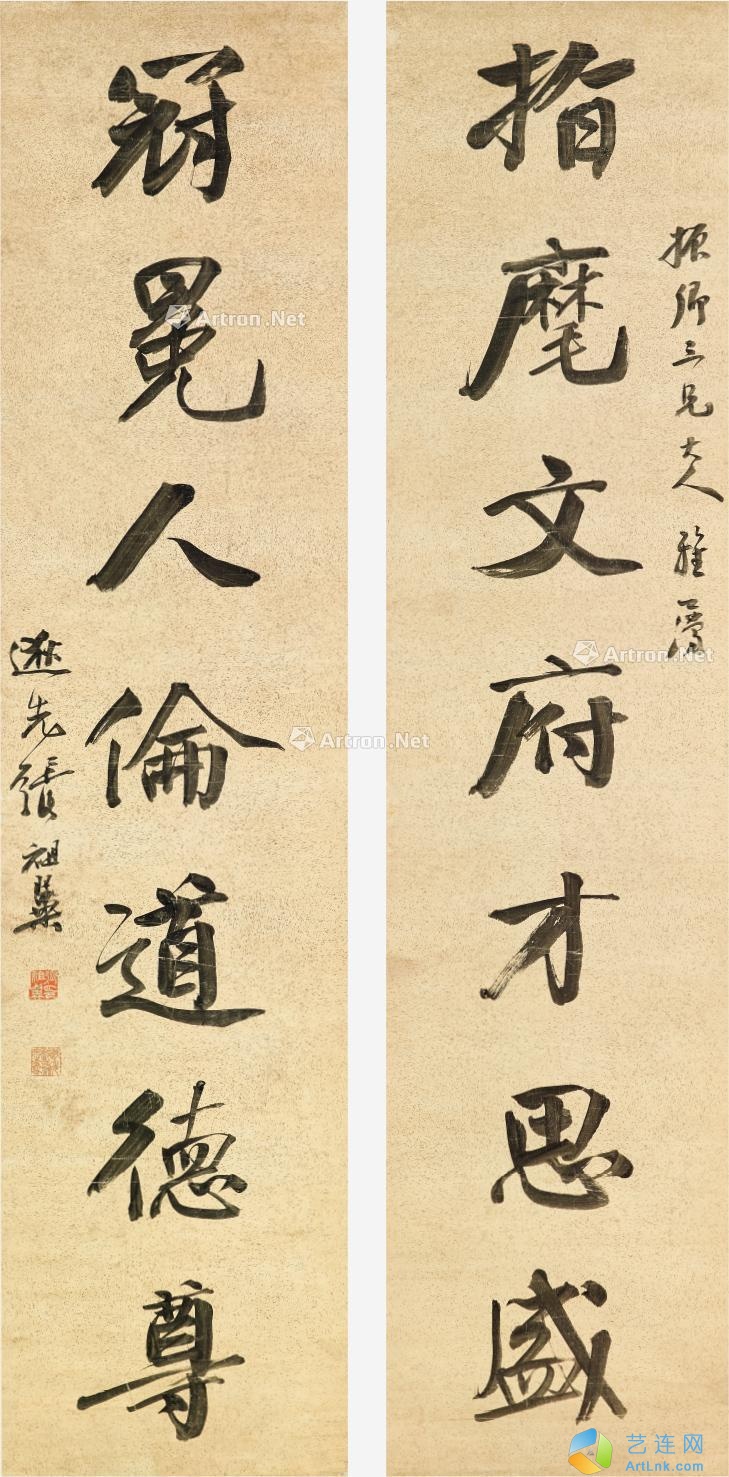 振卿三兄大人雅属
指麾文府才思盛
冠冕人倫道德尊
逖先張祖翼
Artron.Net
Artron.Net
Artron.Net
艺连网
ArtLnk.com